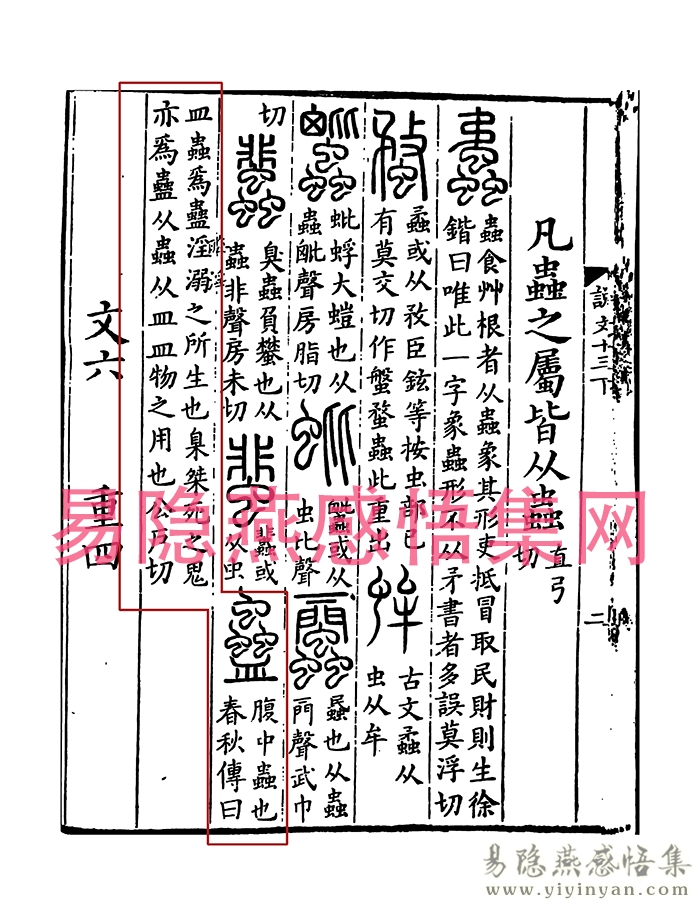 説文十三下
二
凡蟲之屬皆从蟲
直弓
切
蟊
蟲食艸根者从蟲象其形吏抵冒取民財則生徐
鍇曰唯此一字象蟲形不从矛書者多誤莫浮切
蝥
蟊或从敄臣鉉等按虫部已
有莫交切作螌蝥蟲此重出
蛑
古文蟊从
虫从牟
蠯
蚍蜉大螘也从
蟲𣬉聲房脂切
蚍
或从
虫比聲
䘇也从蟲
門聲武巾
切
蠹
臭蟲負蠜也从
蟲非聲房未切
蜚
蟲或
从虫
蠱
腹中蟲也
春秋傳曰
皿蟲爲蠱晦淫淫溺之所生也臬桀死之鬼
亦爲蠱从蟲从皿皿物之用也公戶切
文六
重四
易隐燕感悟集网
易隐燕感悟集
www.yiyinyan.com